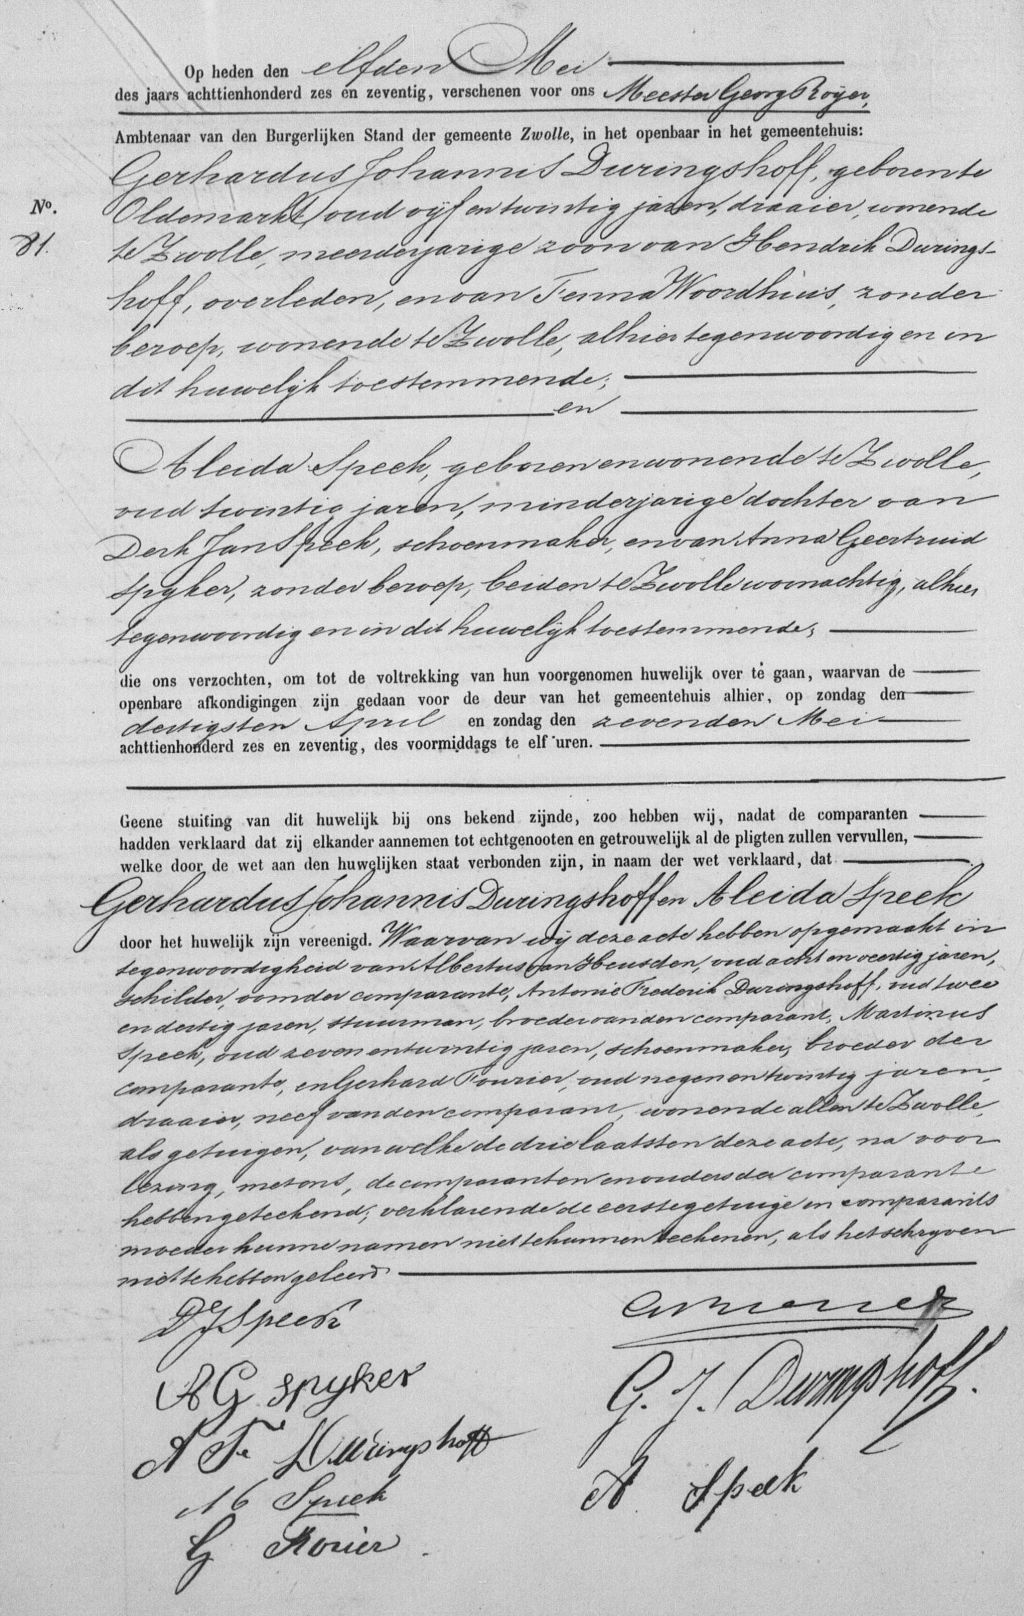 Op heden den elfden Mei
des jaars achttienhonderd zes en zeventig, verschenen voor ons Meester Georg Royer,
Ambtenaar van den Burgerlijken Stand der gemeente Zwolle, in het openbaar in het gemeentehuis:
Gerhardus Johannis Duringshoff, geboren te
No.
Oldemarkt, oud vijf en twintig jaren, draaier, wonende
81.
te Zwolle, meerderjarige zoon van Hendrik Durings-
hoff, overleden, en van Fenna Woordhuis, zonder
beroep, wonende te Zwolle, alhier tegenwoordig en in
dit huwelijk toestemmende;
en
Aleida Speek, geboren en wonende te Zwolle,
oud twintig jaren, minderjarige dochter van
Derk Jan Speek, schoenmaker, en van Anna Geertruid
Spyker, zonder beroep, beiden te Zwolle woonachtig, alhier
tegenwoordig en in dit huwelijk toestemmende;
die ons verzochten, om tot de voltrekking van hun voorgenomen huwelijk over te gaan, waarvan de
openbare afkondigingen zijn gedaan voor de deur van het gemeentehuis alhier, op zondag den
dertigsten April en zondag den zevenden Mei
achttienhonderd zes en zeventig, des voormiddags te elf uren.
Geene stuiting van dit huwelijk bij ons bekend zijnde, zoo hebben wij, nadat de comparanten
hadden verklaard dat zij elkander aannemen tot echtgenooten en getrouwelijk al de pligten zullen vervullen,
welke door de wet aan den huwelijken staat verbonden zijn, in naam der wet verklaard, dat
Gerhardus Johannis Duringshoff en Aleida Speek
door het huwelijk zijn vereenigd. Waarvan wij deze acte hebben opgemaakt in
tegenwoordigheid van Albertus van Heusden, oud acht en veertig jaren,
schilder, oom der comparante, Antonie Frederik Duringshoff, oud twee
en dertig jaren, stuurman, broeder van den comparant, Martinus
Speek, oud zeven en twintig jaren, schoenmaker, broeder der
comparante, en Gerhard Fourier, oud negen en twintig jaren,
draaier, neef van den comparant, wonende allen te Zwolle,
als getuigen, van welke de drie laatsten deze acte, na voor
lezing, met ons, de comparanten en ouders der comparante
hebben geteekend; verklarende de eerste getuige en comparants
moeder hunne namen niet te kunnen teekenen, als het schryven
niet te hebben geleerd.
D J Speek
A G Spyker
G. J. Duringshoff.
A F Duringshoff
A Speek
M Speek
G Forier